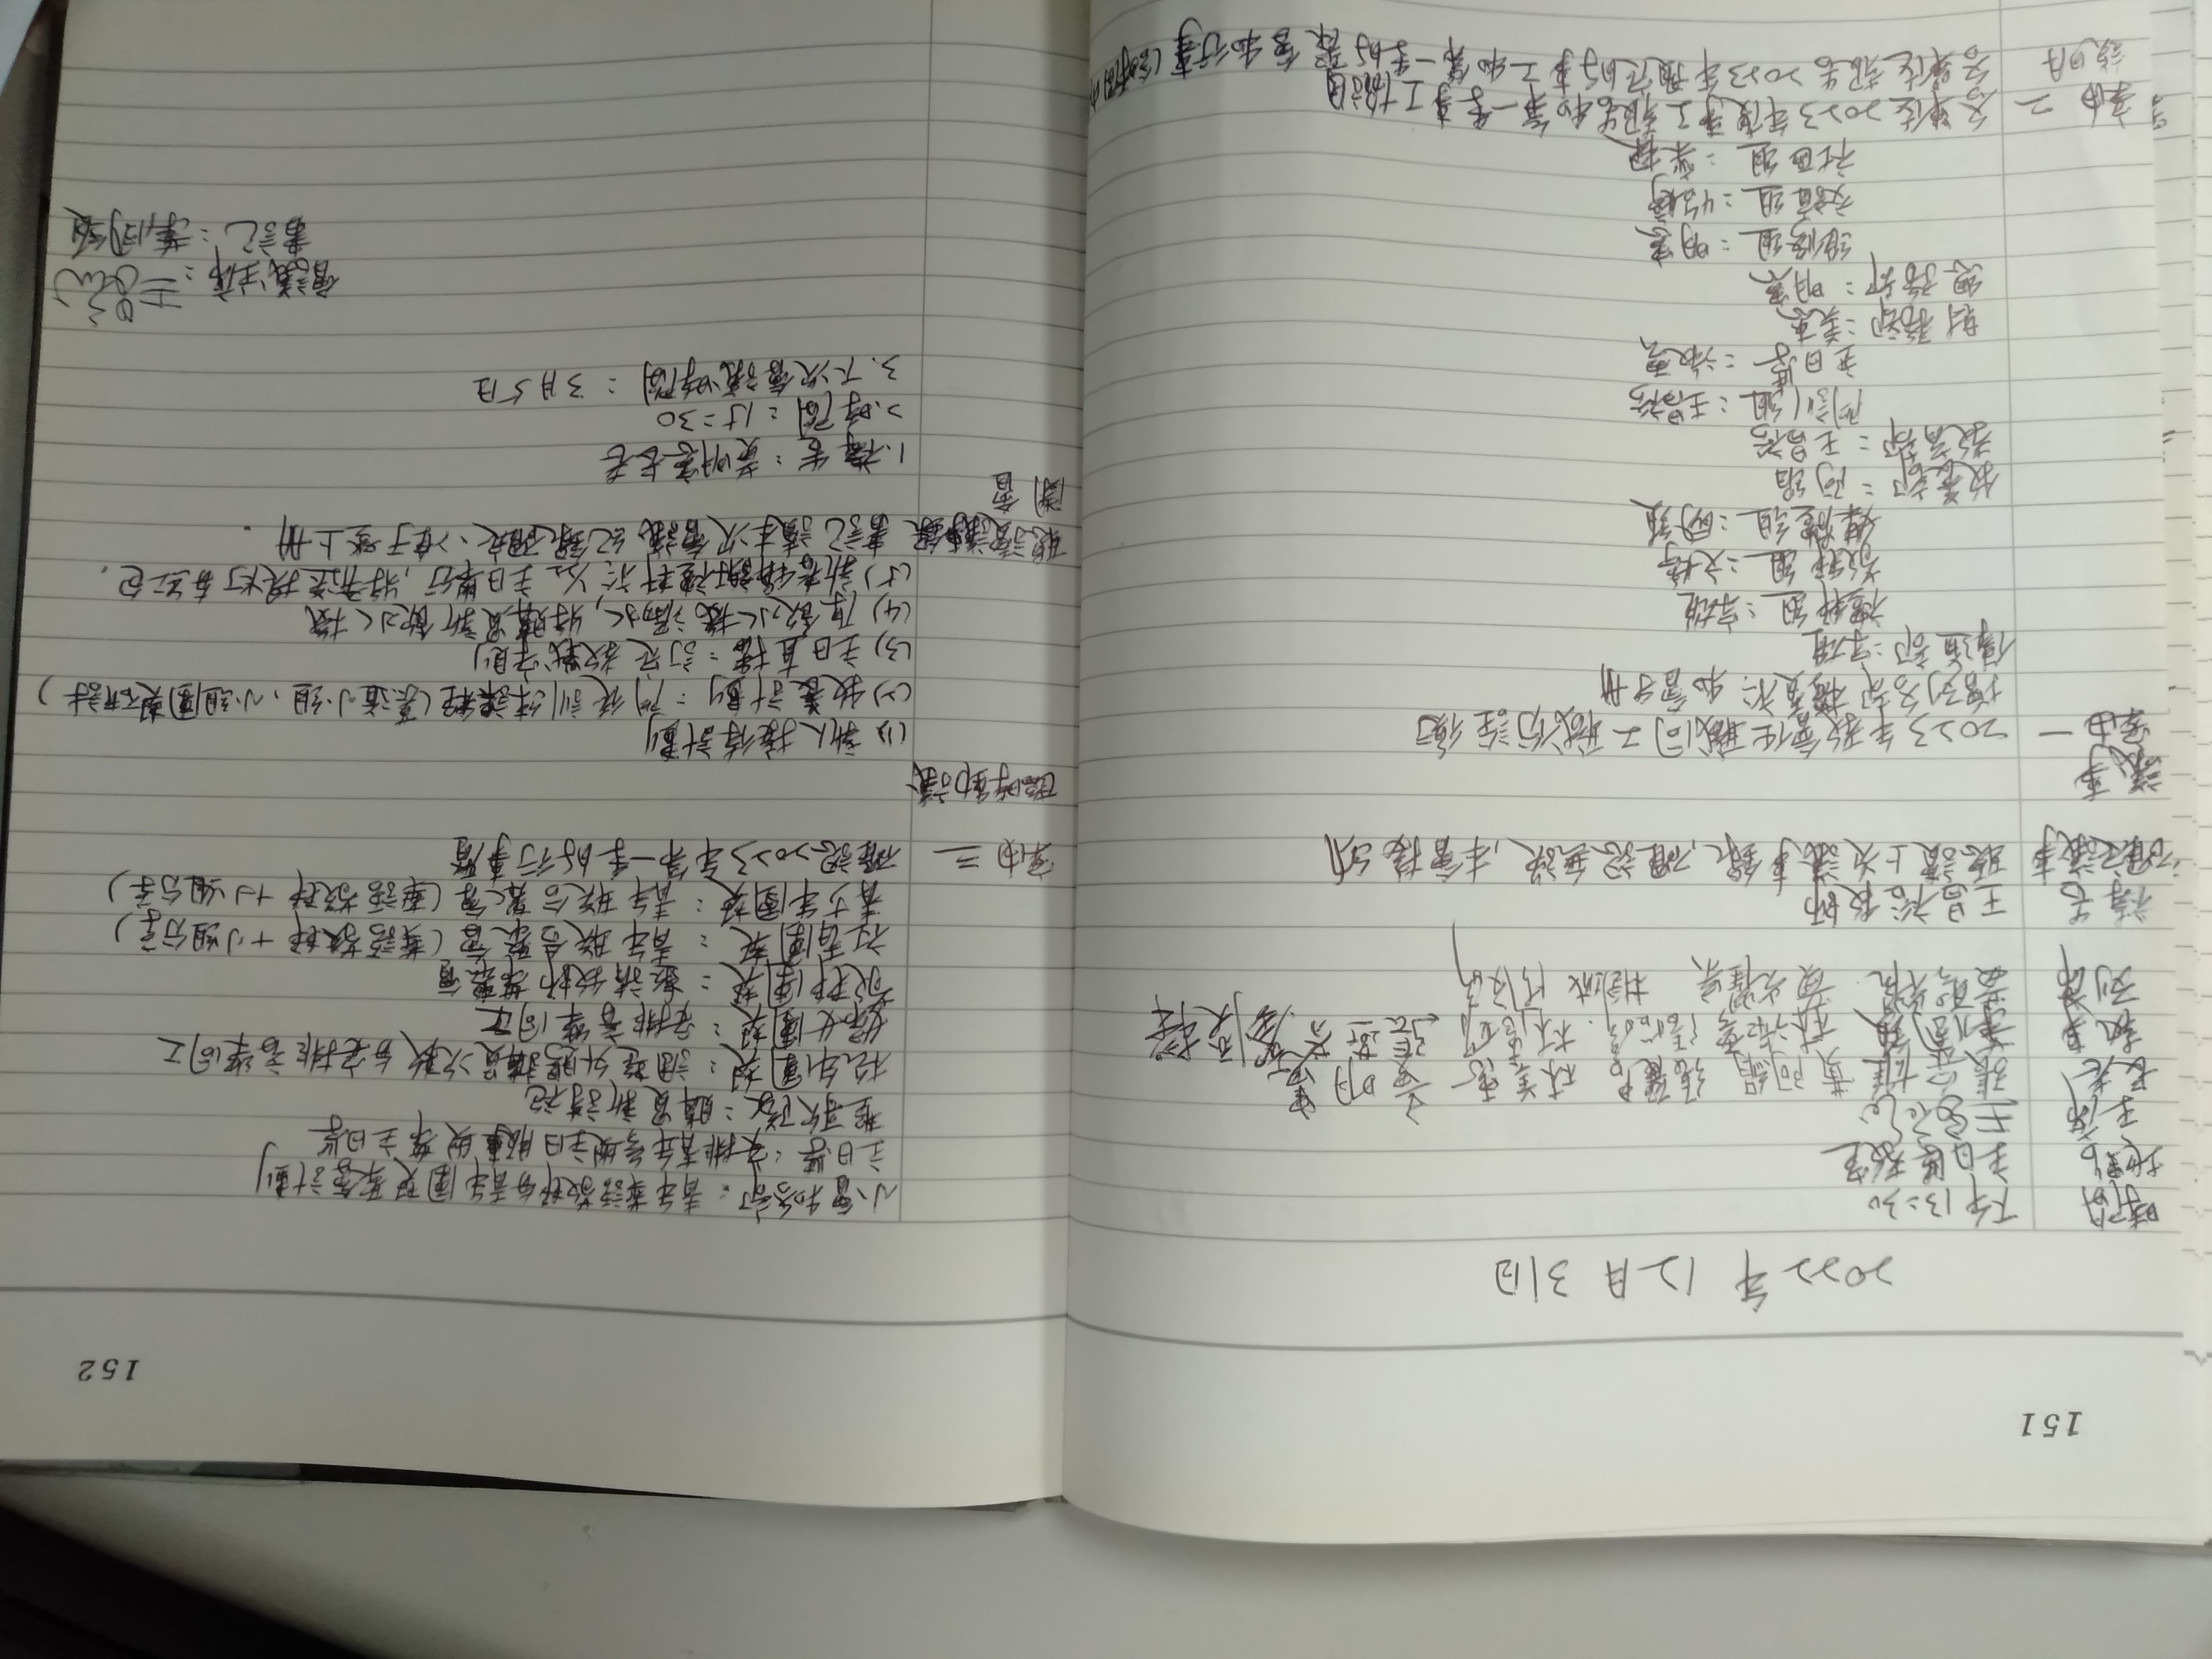 151
2022年 12月 31日
時間 下午 13:30
地點 主日學教室
主席 王昌裕
長老 張宗雄 黃阿絹 張麗君 林美惠 黃明憲
執事 葉國鎮 林淑雲 張怡婷 林惠娟 張燕芬 劉奕樑
列席 黃聖耀 黃耀宗 桓城 周文婷
禱告 王昌裕牧師
確定議事 聽讀上次議事錄,確認無誤,本會接納
議事
案由一 2023年教會任職同工職份詮衡
增列各部權責於和會手冊
傳道部:宗雄
禮拜組:宗雄
敬拜組:文婷
媒體組:國鎮
牧養部:阿絹
教育部:王昌裕
門訓組:王昌裕
主日学:淑雲
財務部:美惠
總務部:明憲
維修組:明憲
交誼組:怡婷
社区組:
案由二 各單位2023年度事工報告和第一季事工協調
說明 各單位報告2023年預定的事工和第一季的聚會和行事(含時間內
152
小會和各部:青年華語敬拜与青年團契聚會計劃
主日學:安排青年參與主日服事與帶主日学
聖歌隊:購買新詩袍
松年團契:調整外賜講員次數与安排音樂同工
婦女團契:安排音樂同工
敬拜團契:邀請牧師帶聚會
社青團契:青年联合聚會(華語敬拜+小組分享)
青少年團契:青年联合聚會(華語敬拜+小組分享)
案由三 確認2023年第一季的行事曆
臨時動議
(1) 新人接待計劃
(2) 牧養計劃:門徒訓練課程(慕道小組、小組團契研討)
(3) 主日直播:訂定教戰守則
(4) 原飲水機漏水,將購買新飲水機
(5) 新春稱謝禮拜於1/22主日舉行,將寄送提灯与紅包.
聽讀議事錄 書記讀本次會議紀錄確定、准于登上冊.
閉會
1.禱告:黃明憲長老
2.時間:15:30
3.下次會議時間:3月5日
會議主席:王昌裕
書記:葉國鎮